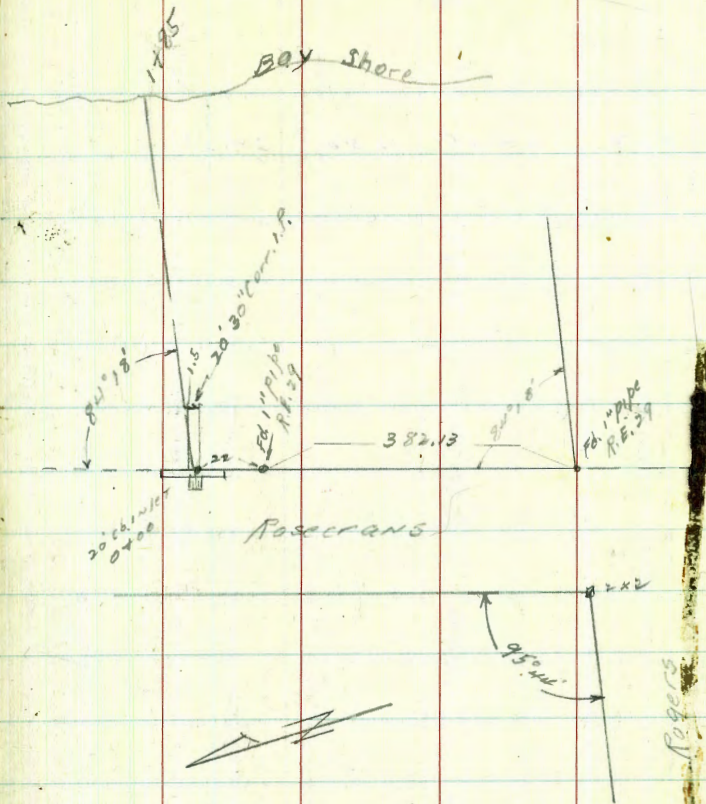 1+85
Bay Shore
84° 18'
1.5
20' 30" Corr. I.P.
Fd. 1" pipe
R.E. 29
382.13
84° 18'
Fd. 1" pipe
R.E. 29
22
20' cb. Inlet
0+00
Rosecrans
2x2
95° 44'
N
Rogers